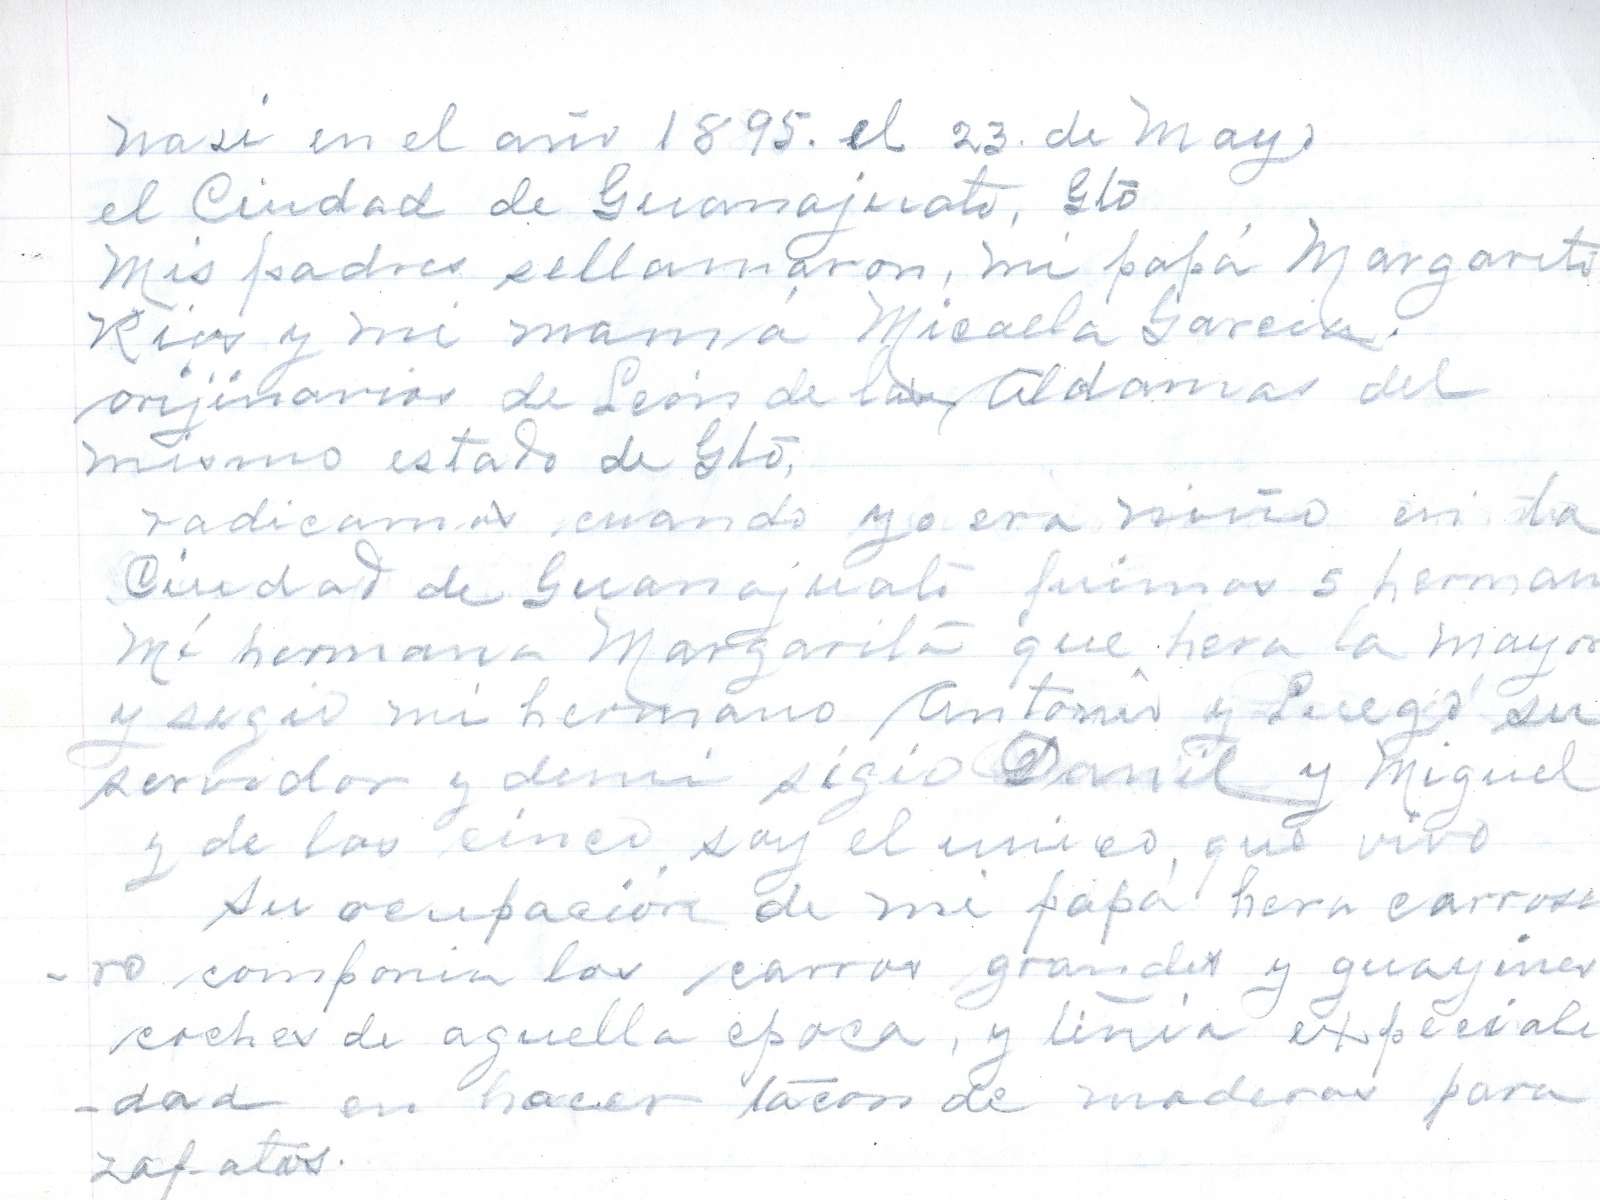 Nasi en el año 1895. el 23. de Mayo
el Ciudad de Guanajuato, Gto
Mis padres sellamaron, mi papá Margarito
Rios y mi mamá Micaela Garcia.
orijinarios de León de las Aldamas del
mismo estado de Gto,
radicamos cuando yo era niño en la
Ciudad de Guanajuato fuimos 5 herman
Mi hermana Margarita que hera la mayor
y sigió mi hermano Antonio y Luego su
servidor y demi sigio Daniel y Miguel
y de los cinco soy el unico, que vivo
Su ocupación de mi papá hera carrose
-ro componia los carros grandes y guayines
coches de aquella epoca, y tenia expeciali
-dad en hacer tacon de maderas para
zapatos.